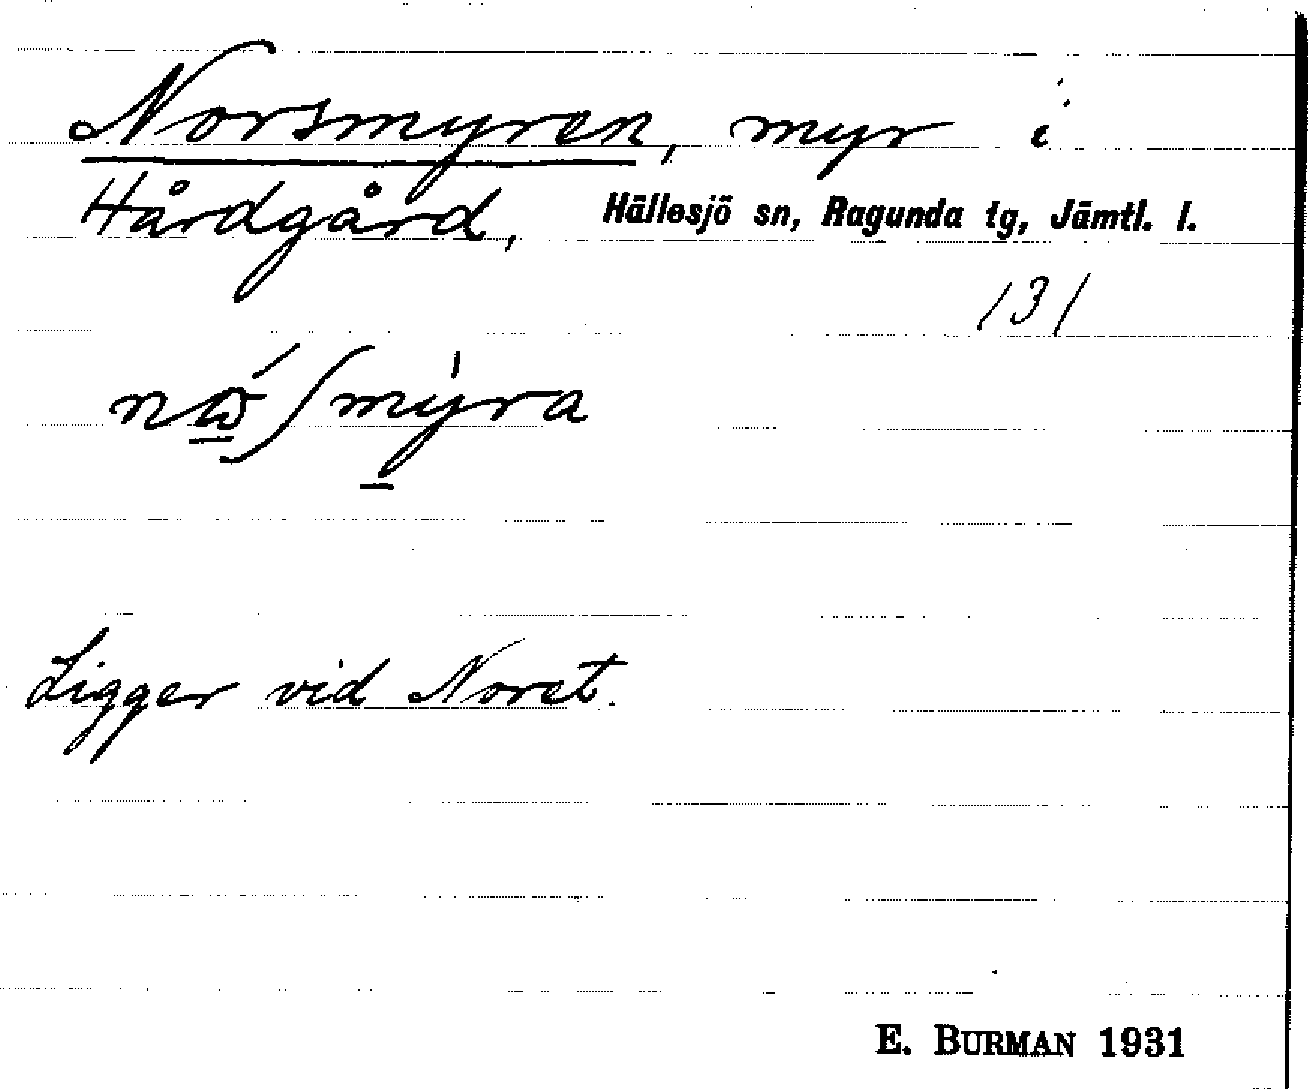 Norsmyren, myr i
Hårdgård, Hällesjö sn, Ragunda tg, Jämtl. l.
131
Ligger vid Noret.
E. BURMAN 1931